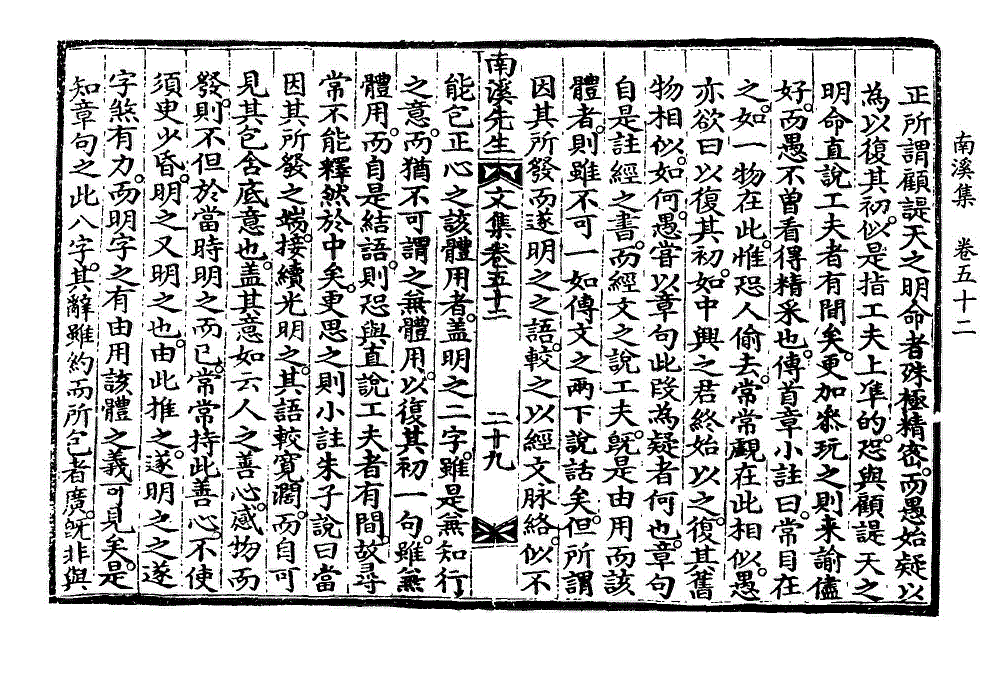 南溪集　卷五十二
正所謂顧諟天之明命者殊極精密。而愚始疑以
為以復其初。似是指工夫上準的。恐與顧諟天之
明命直說工夫者有間矣。更加叅玩之則来諭儘
好。而愚不曾看得精采也。傳首章小註曰。常目在
之。如一物在此。惟恐人偷去。常常覷在此相似。愚
亦欲曰以復其初。如中興之君終始以之。復其舊
物相似。如何。愚甞以章句此段為疑者何也。章句
自是註經之書。而經文之說工夫。旣是由用而該
體者。則雖不可一如傳文之兩下說話矣。但所謂
因其所發而遂明之之語。較之以經文脉絡。似不
南溪先生文集卷五十二　二十九
能包正心之該體用者。盖明之二字。雖是兼知行
之意。而猶不可謂之兼體用。以復其初一句。雖兼
體用。而自是結語。則恐與直說工夫者有間。故尋
常不能釋然於中矣。更思之則小註朱子說曰當
因其所發之端。接續光明之。其語較寬濶。而自可
見其包含底意也。盖其意如云人之善心。感物而
發。則不但於當時明之而已。常常持此善心。不使
須臾少昏。明之又明之也。由此推之。遂明之之遂
字煞有力。而明字之有由用該體之義可見矣。是
知章句之此八字。其辭雖約而所包者廣。旣非與